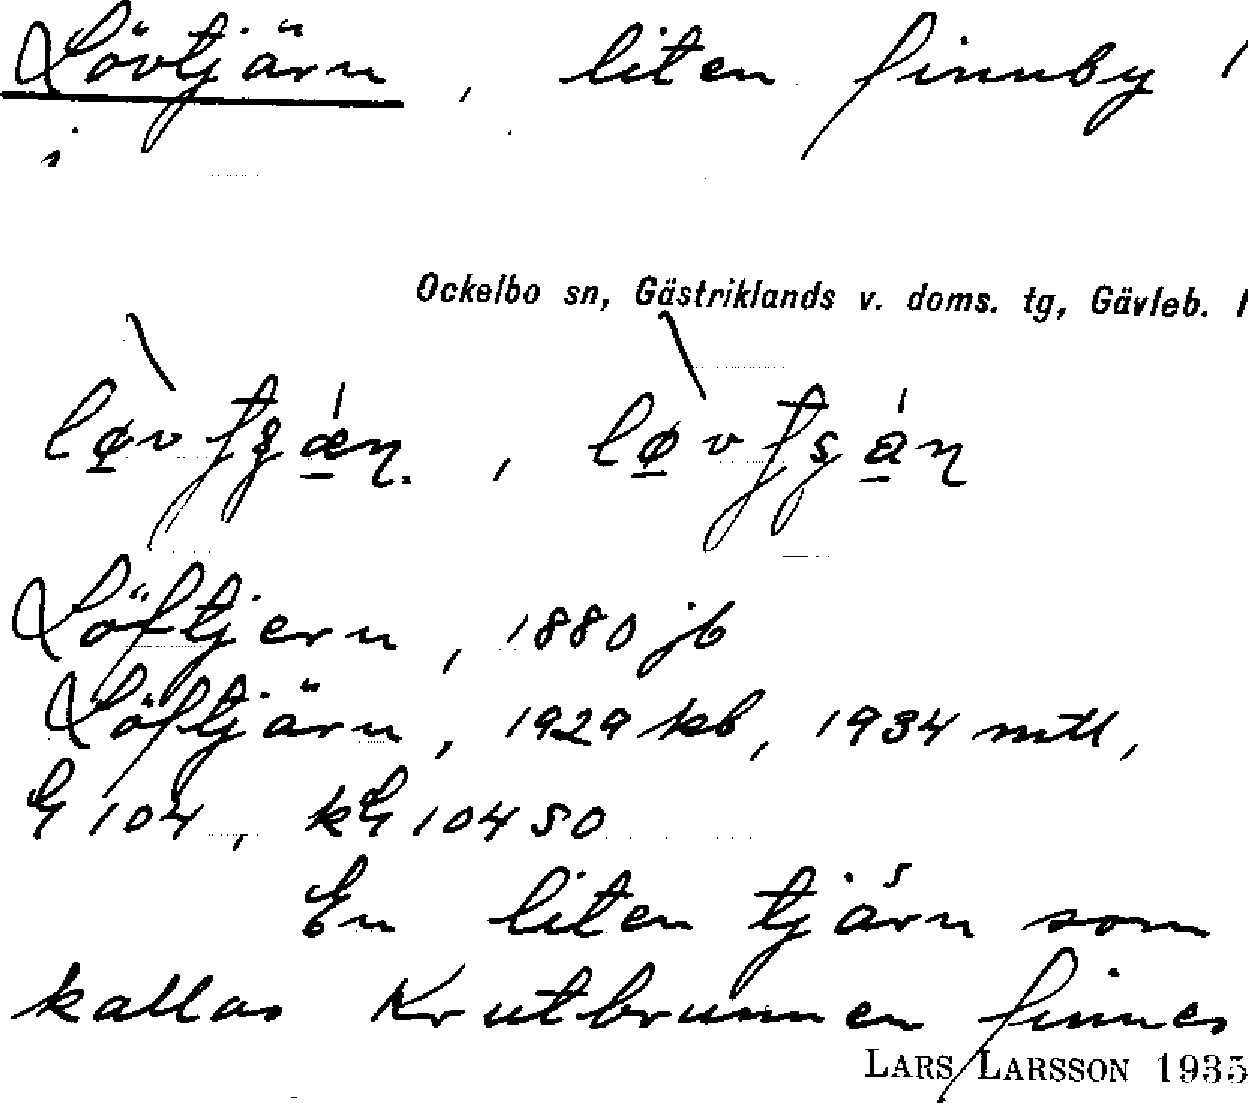 Lövtjärn, liten finnby
i
Ockelbo sn, Gästriklands v. doms. tg, Gävleb. l
Löftjern, 1880 jb
Löftjärn, 1929 kb, 1934 mtl,
G 104, kG 104 SO
En liten tjärn som
kallas Krutbrunnen finnes
LARS LARSSON 1935